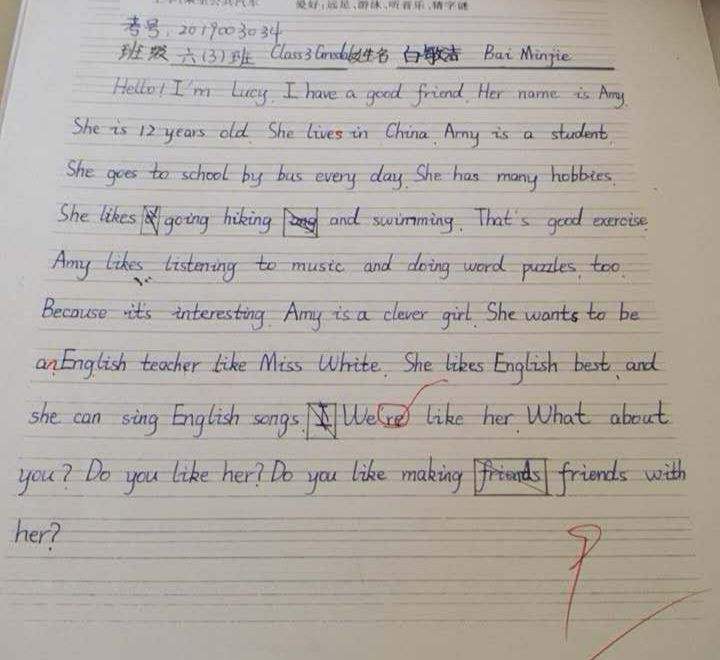 爱好：远足、游泳、听音乐、猜字谜
考号：2019003034
班级 六（3）班 Class 3 Grade 姓名 白敏洁 Bai Minjie
Hello! I'm Lucy. I have a good friend. Her name is Amy.
She is 12 years old. She lives in China. Amy is a student.
She goes to school by bus every day. She has many hobbies.
She likes going hiking and swimming. That's good exercise.
Amy likes listening to music and doing word puzzles, too.
Because it's interesting. Amy is a clever girl. She wants to be
an English teacher like Miss White. She likes English best, and
she can sing English songs. I We're like her. What about
you? Do you like her? Do you like making friends friends with
her?
9